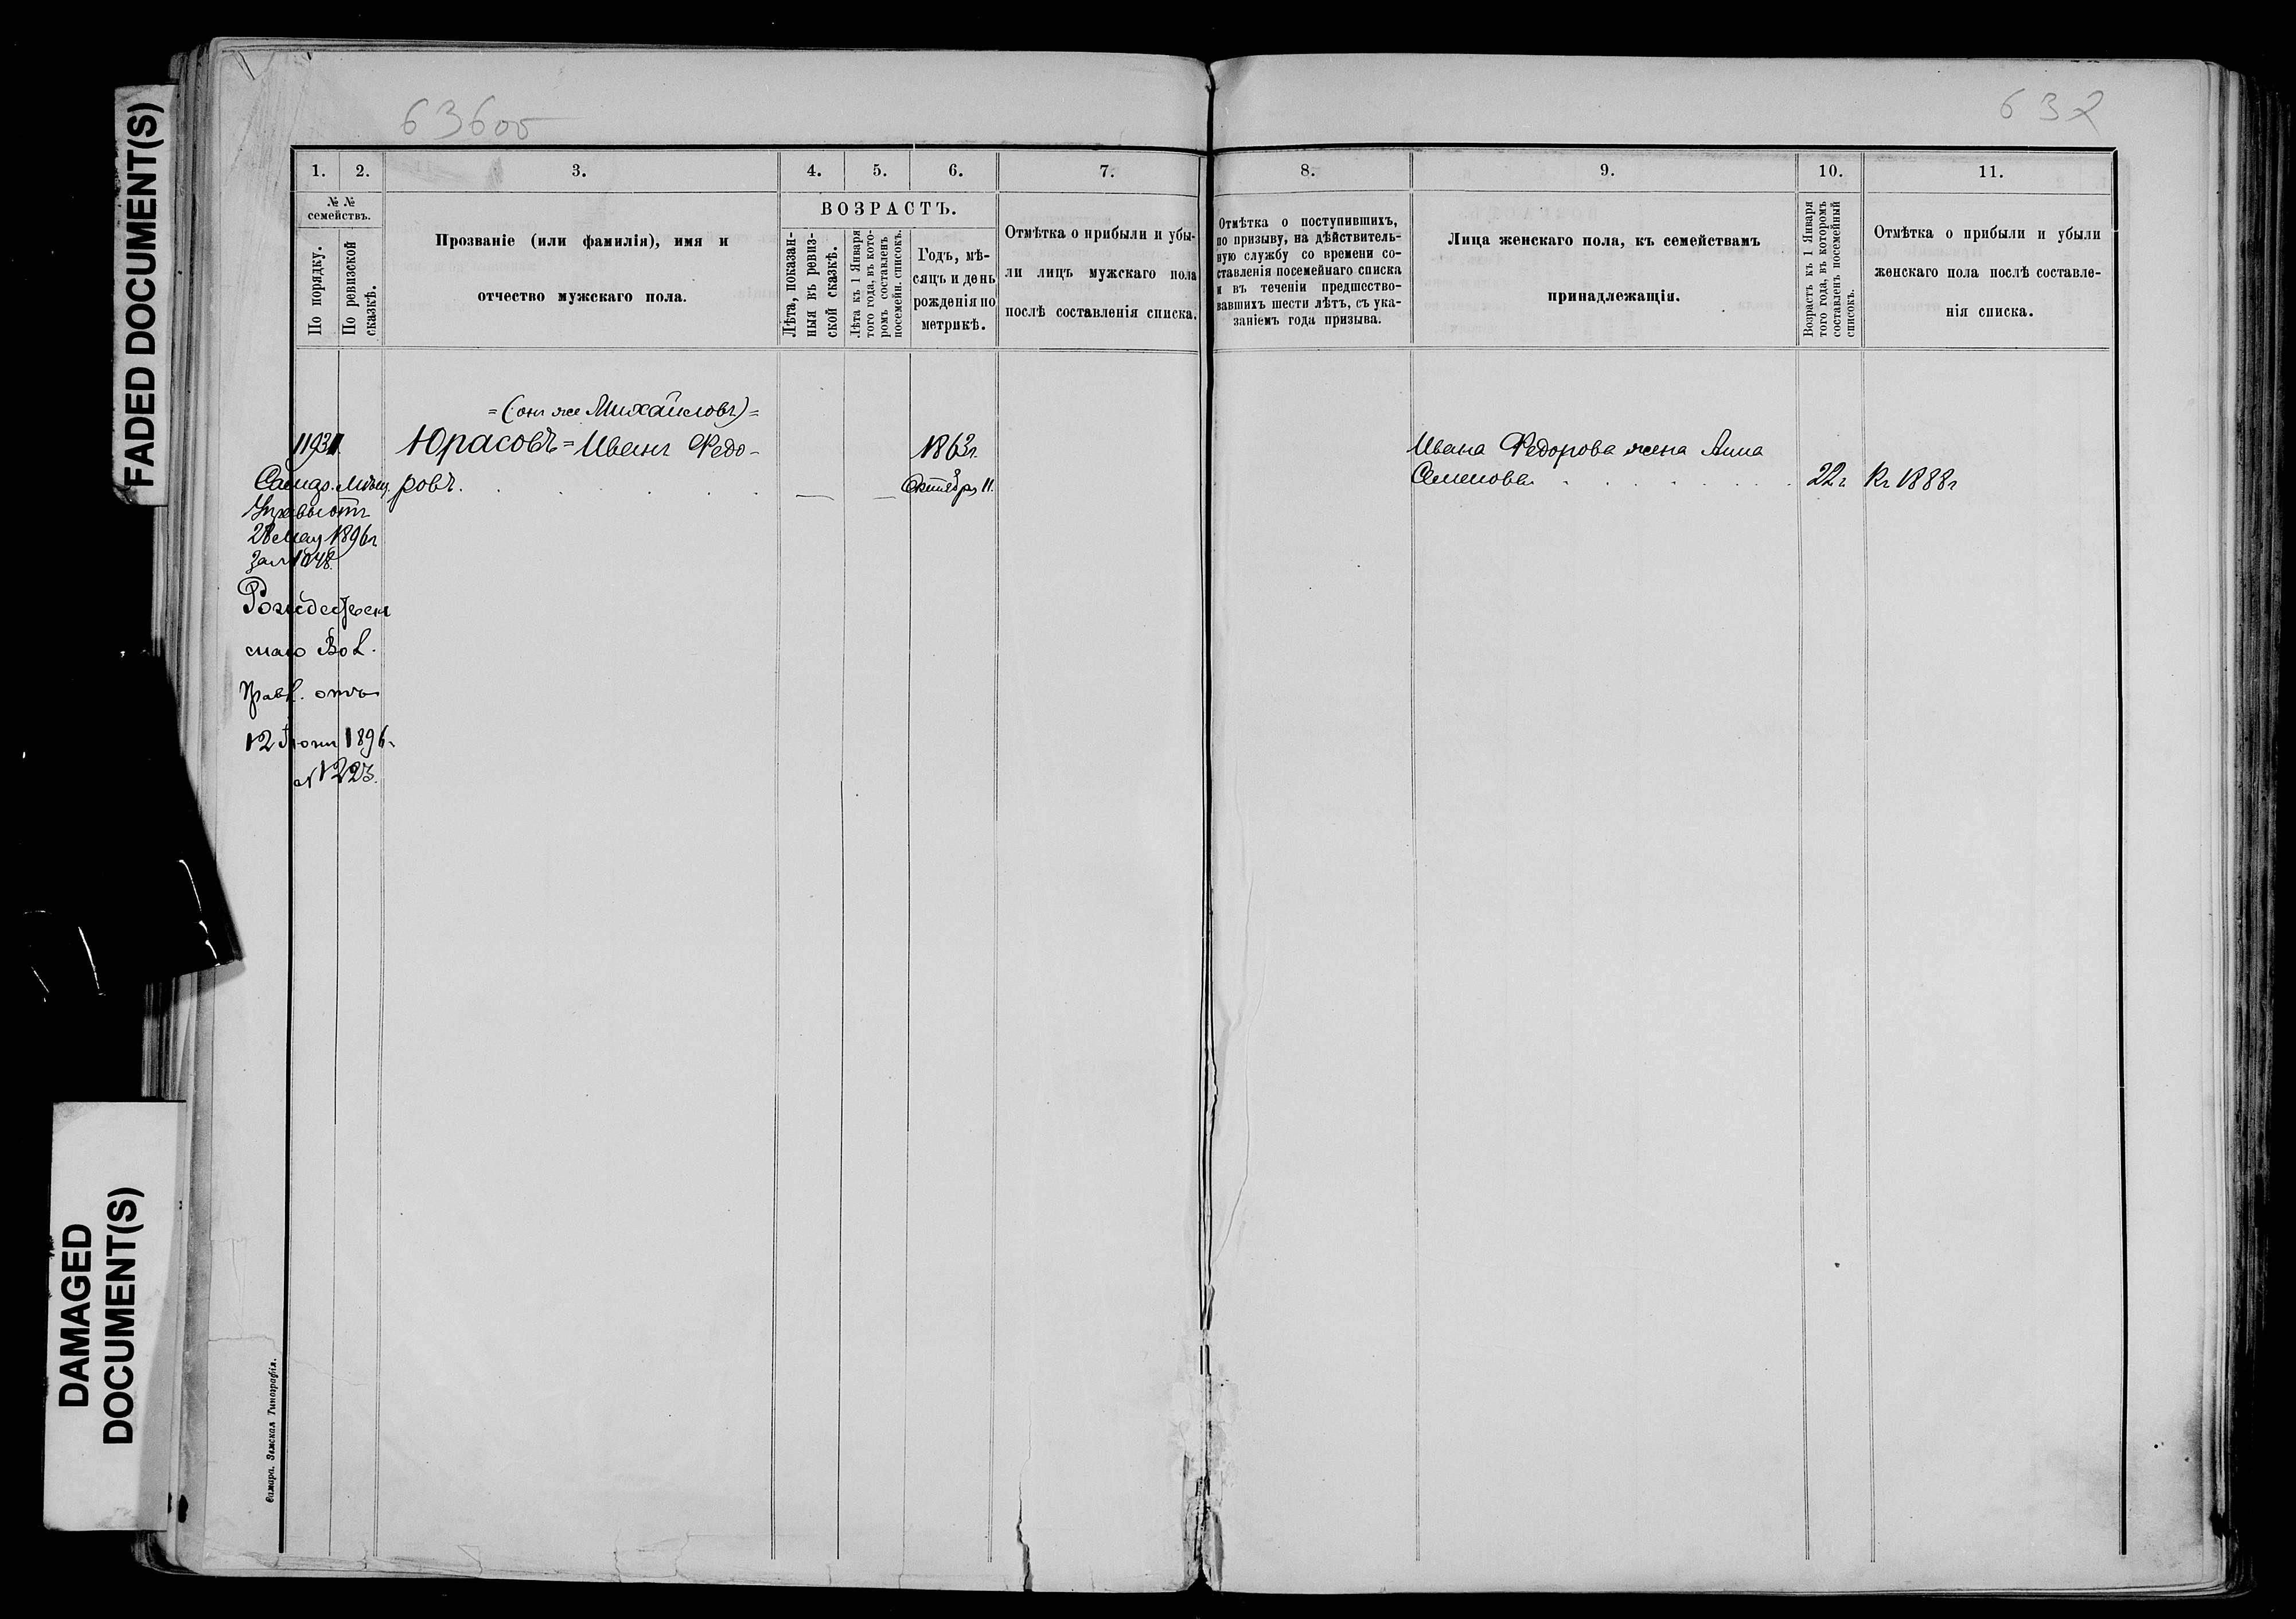 FADED DOCUMENT(S)
DAMAGED
DOCUMENT(S)
636об
632
1. 2. 3. 4. 5. 6. 7. 8. 9. 10. 11.
№ №
семействъ.
По порядку.
По ревизской
сказкѣ.
Прозваніе (или фамилія), имя и
отчество мужскаго пола.
ВОЗРАСТЪ.
Лѣта, показан-
ныя въ ревиз-
ской сказкѣ.
Лѣта къ 1 Января
того года, въ кото-
ромъ составленъ
посемейн. списокъ.
Годъ, мѣ-
сяцъ и день
рожденія по
метрикѣ.
Отмѣтка о прибыли и убы-
ли лицъ мужскаго пола
послѣ составленія списка.
Отмѣтка о поступившихъ,
по призыву, на дѣйствитель-
ную службу со времени со-
ставленія посемейнаго списка
и въ теченіи предшество-
вавшихъ шести лѣтъ, съ ука-
заніемъ года призыва.
Лица женскаго пола, къ семействамъ
принадлежащія.
Возрастъ къ 1 Января
того года, въ которомъ
составленъ посемейный
списокъ.
Отмѣтка о прибыли и убыли
женскаго пола послѣ составле-
нія списка.
=(онъ же Михайловъ)=
1193 Юрасовъ = Иванъ Федо- 1863г.
ровъ. Октября 11.
Мѣщ.
отъ
28 мая 1896г
за № 1048.
Рождествен
скаго Вол.
Правл. отъ
12 Іюня 1896г
№ 1223.
Ивана Федорова жена Анна
Семенова 22г. Къ 1888г
Самара. Земская Типографія.